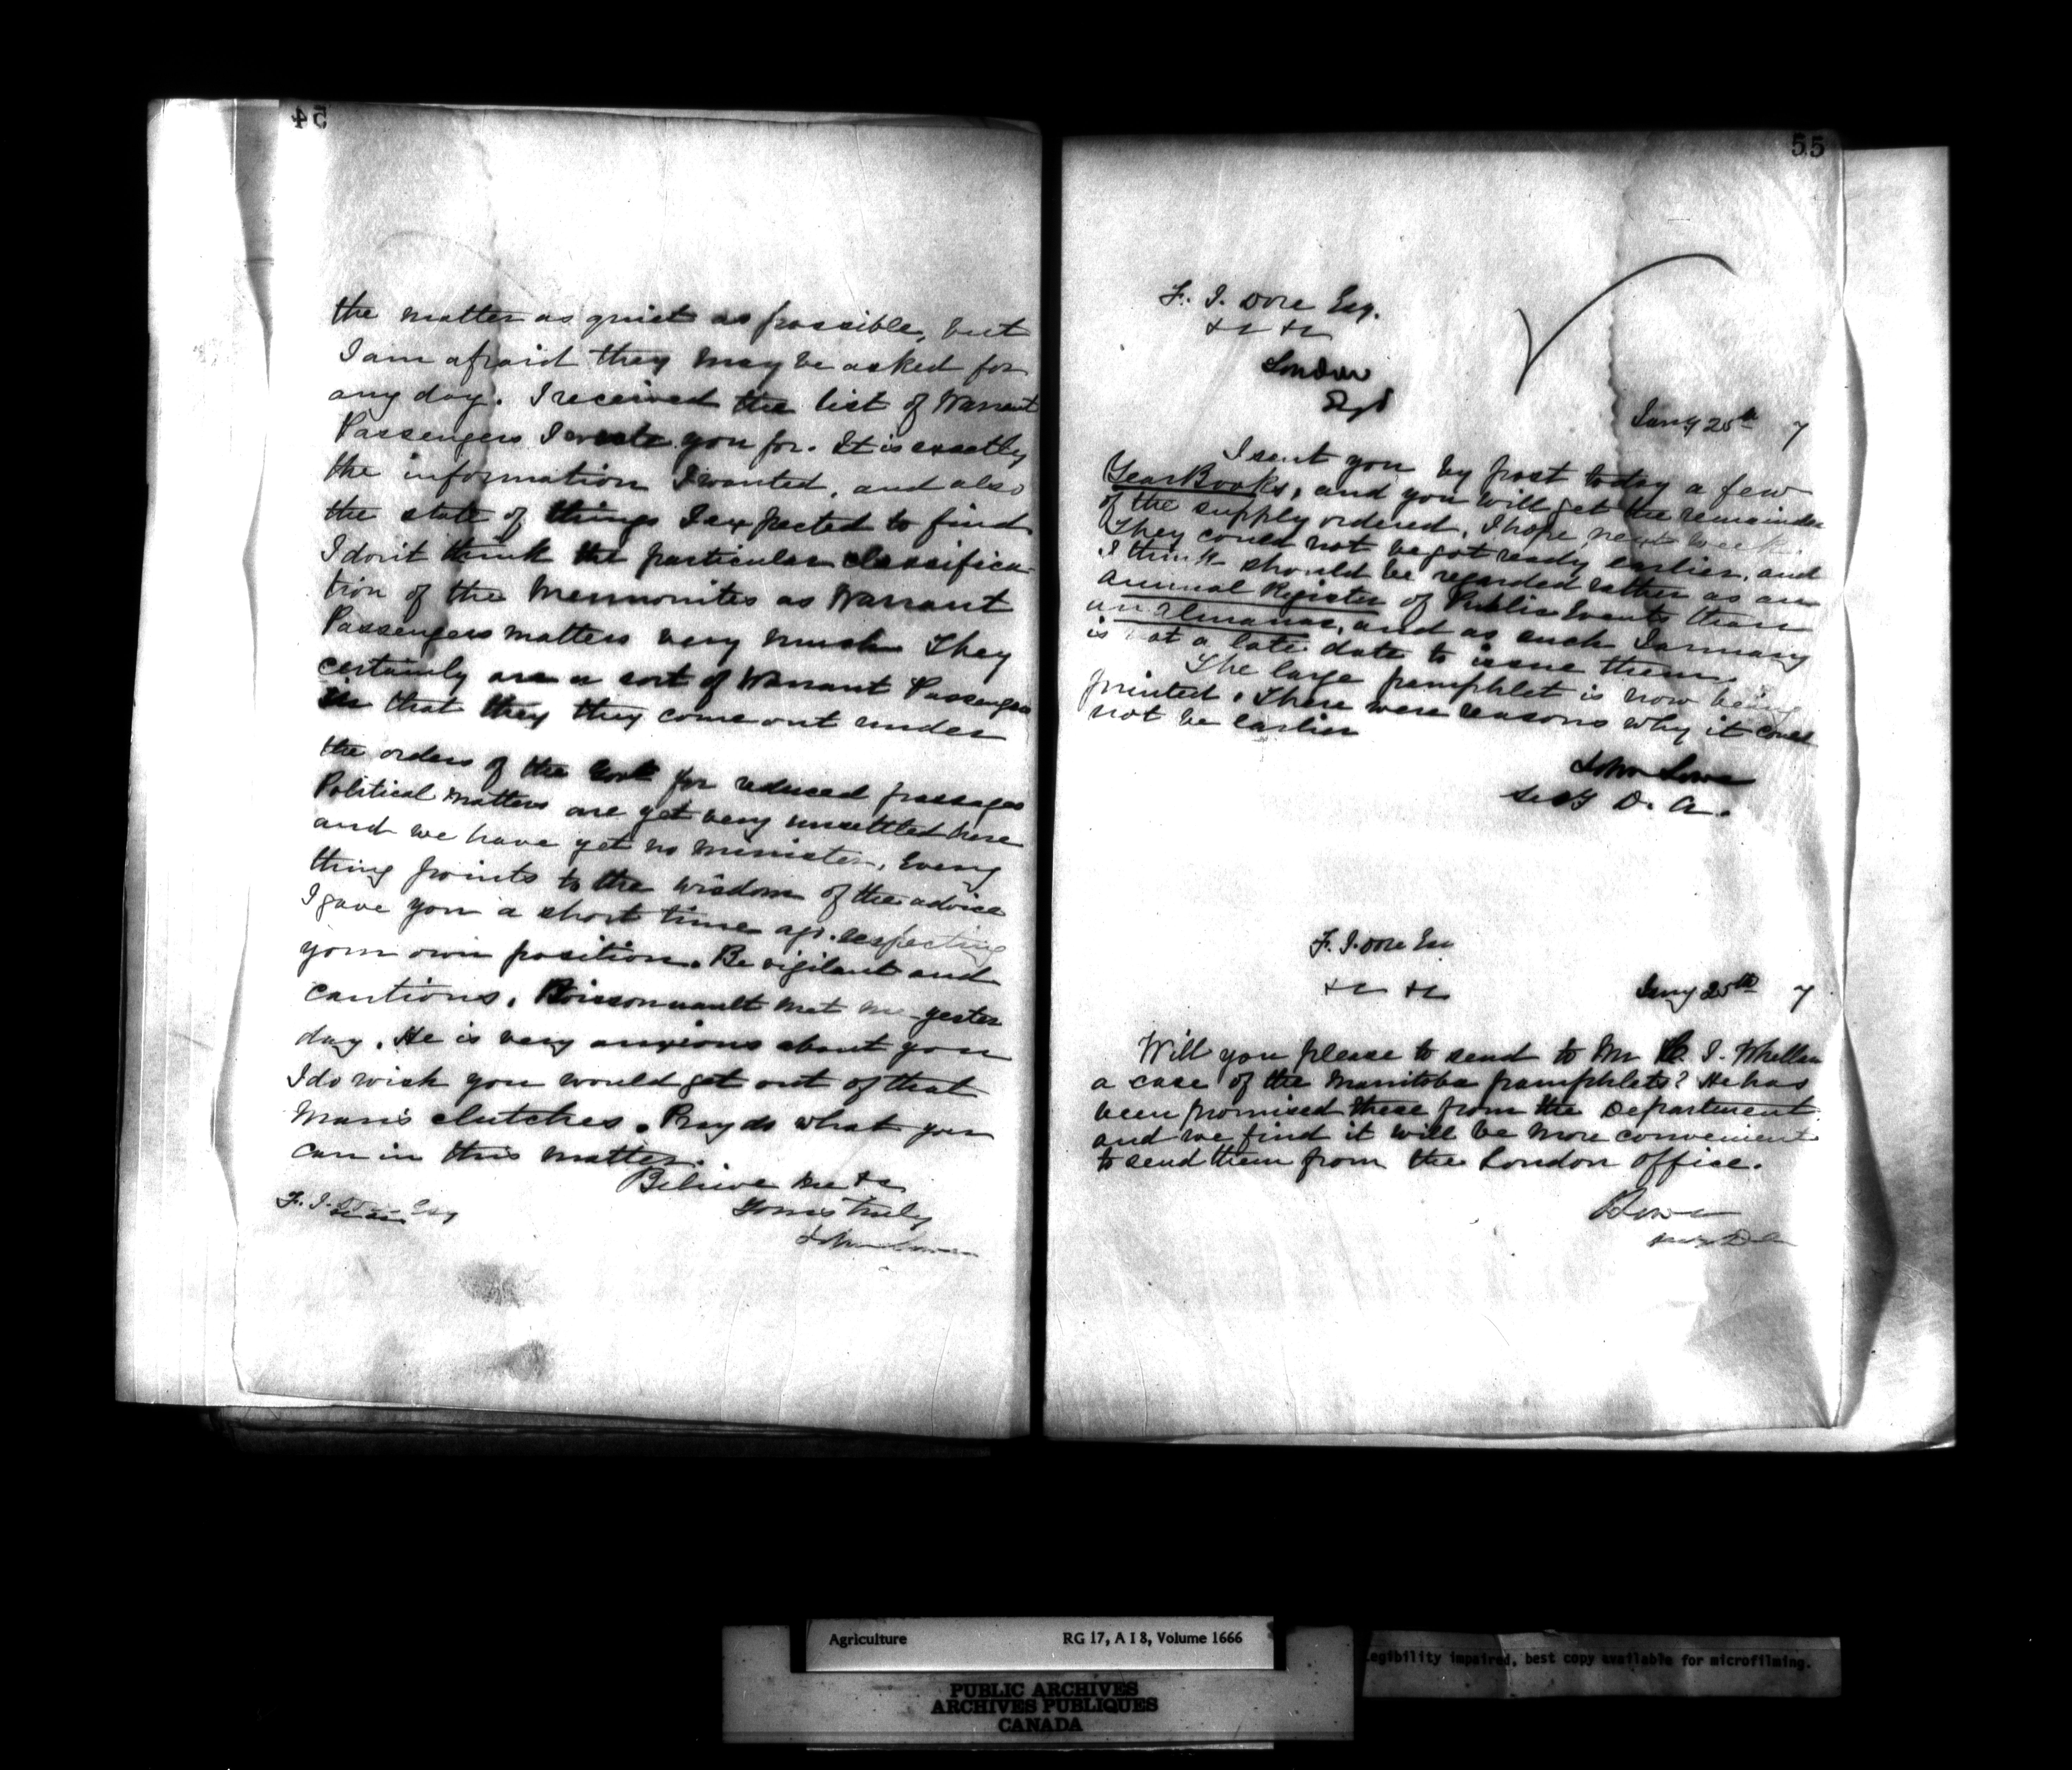 54
the matter as quiet as possible, but
I am afraid they may be asked for
any day. I received the list of Warrant
Passengers I wrote you for. It is exactly
the information I wanted, and also
the state of things I expected to find
I don't think the particular classifica-
tion of the Mennonites as Warrant
Passengers matters very much They
certainly are a sort of Warrant Passengers
in that they they come out under
the orders of the Govt for reduced passages
Political matters are yet very unsettled here
and we have yet no minister. Every
thing points to the wisdom of the advice
I gave you a short time ago respecting
your own position. Be vigilant and
cautious. Boissonnault met me yester
day. He is very anxious about you
I do wish you would get out of that
Man's clutches. Pray do what you
can in this matter.
Believe me &c
Yours truly
John Lowe
F. J. Dore Esq
55
F. J. Dore Esq.
&c &c
London
Jany 25th 7
I sent you by post today a few
Year Books, and you will get the remainder
of the supply ordered, I hope, next week.
They could not be got ready earlier, and
I think should be regarded rather as an
Annual Register of Public Events than
an Almanac, and as such January
is not a late date to issue them.
The large pamphlet is now being
printed. There were reasons why it could
not be earlier
John Lowe
Secy D. A.
F. J. Dore Esq
&c &c
Jany 25th 7
Will you please to send to Mr J. Whellan
a case of the Manitoba pamphlets? He has
been promised these from the Department
and we find it will be more convenient
to send them from the London office.
Lowe
Secy D A
Agriculture RG 17, A I 8, Volume 1666
Legibility impaired, best copy available for microfilming.
PUBLIC ARCHIVES
ARCHIVES PUBLIQUES
CANADA